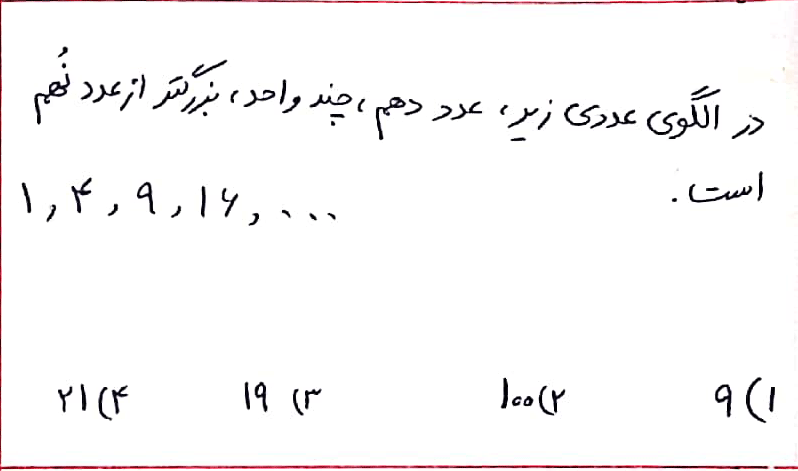 در الگوی عددی زیر، عدد دهم، چند واحد، بزرگتر از عدد نُهم
است.
۱, ۴, ۹, ۱۶, ...
۱) ۹ ۲) ۱۰۰ ۳) ۱۹ ۴) ۲۱